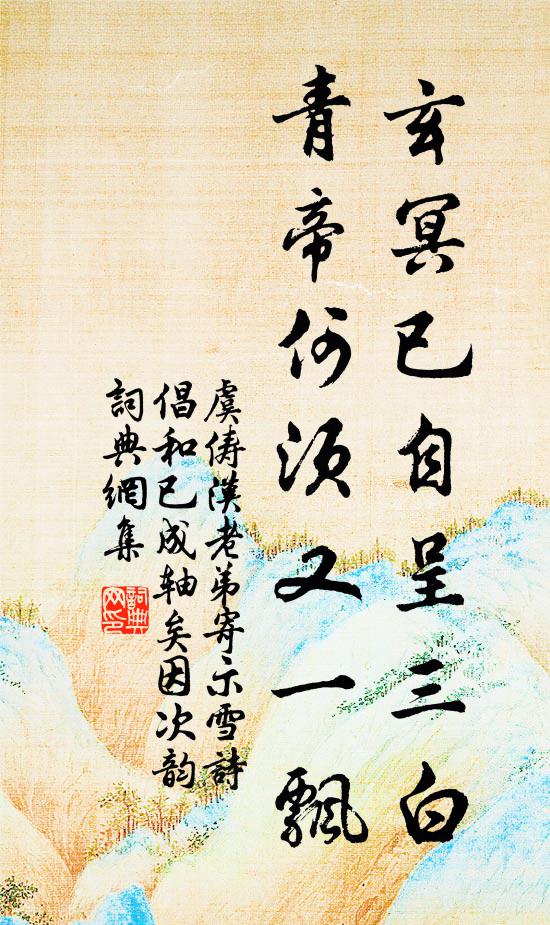 玄冥已自呈三白
青帝何须又一飘
虞俦漢老弟寄示雪詩
倡和已成轴矣因次韵
詞典網集
詞典网印